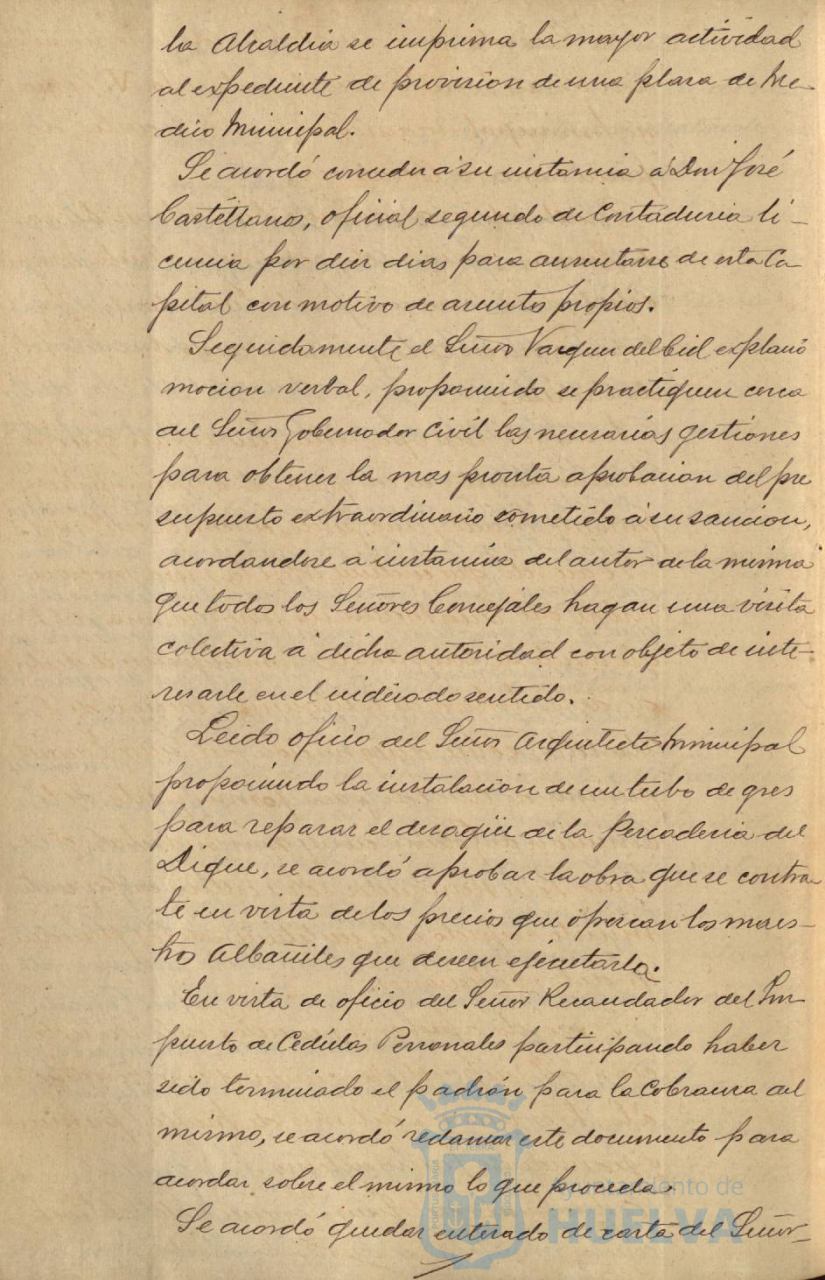 la Alcaldia se imprima la mayor actividad
al expediente de provision de una plaza de Me-
dico Municipal.
Se acordó conceder á su instancia á Don José
Castellano, oficial segundo de Contaduria li-
cencia por diez dias para ausentarse de esta Ca-
pital con motivo de asuntos propios.
Seguidamente el Señor Vazquez del Cid explanó
mocion verbal, proponiendo se practiquen cerca
del Señor Gobernador Civil las necesarias gestiones
para obtener la mas pronta aprobacion del pre
supuesto extraordinario sometido á su sancion,
acordandose á instancia del autor de la misma
que todos los Señores Concejales hagan una visita
colectiva á dicha autoridad con objeto de inte-
resarle en el indicado sentido.
Leido oficio del Señor Arquitecto Municipal
proponiendo la instalacion de un tubo de gres
para reparar el desagüe de la Pescaderia del
Dique, se acordó aprobar la obra que se contra-
te en vista de los precios que ofrezcan los maes-
tros Albañiles que deseen ejecutarla.
En vista de oficio del Señor Recaudador del Im-
puesto de Cedulas Personales participando haber
sido terminado el padrón para la cobranza del
mismo, se acordó reclamar este documento para
acordar sobre el mismo lo que proceda.
Se acordó quedar enterado de carta del Señor
Ayuntamiento de
HUELVA